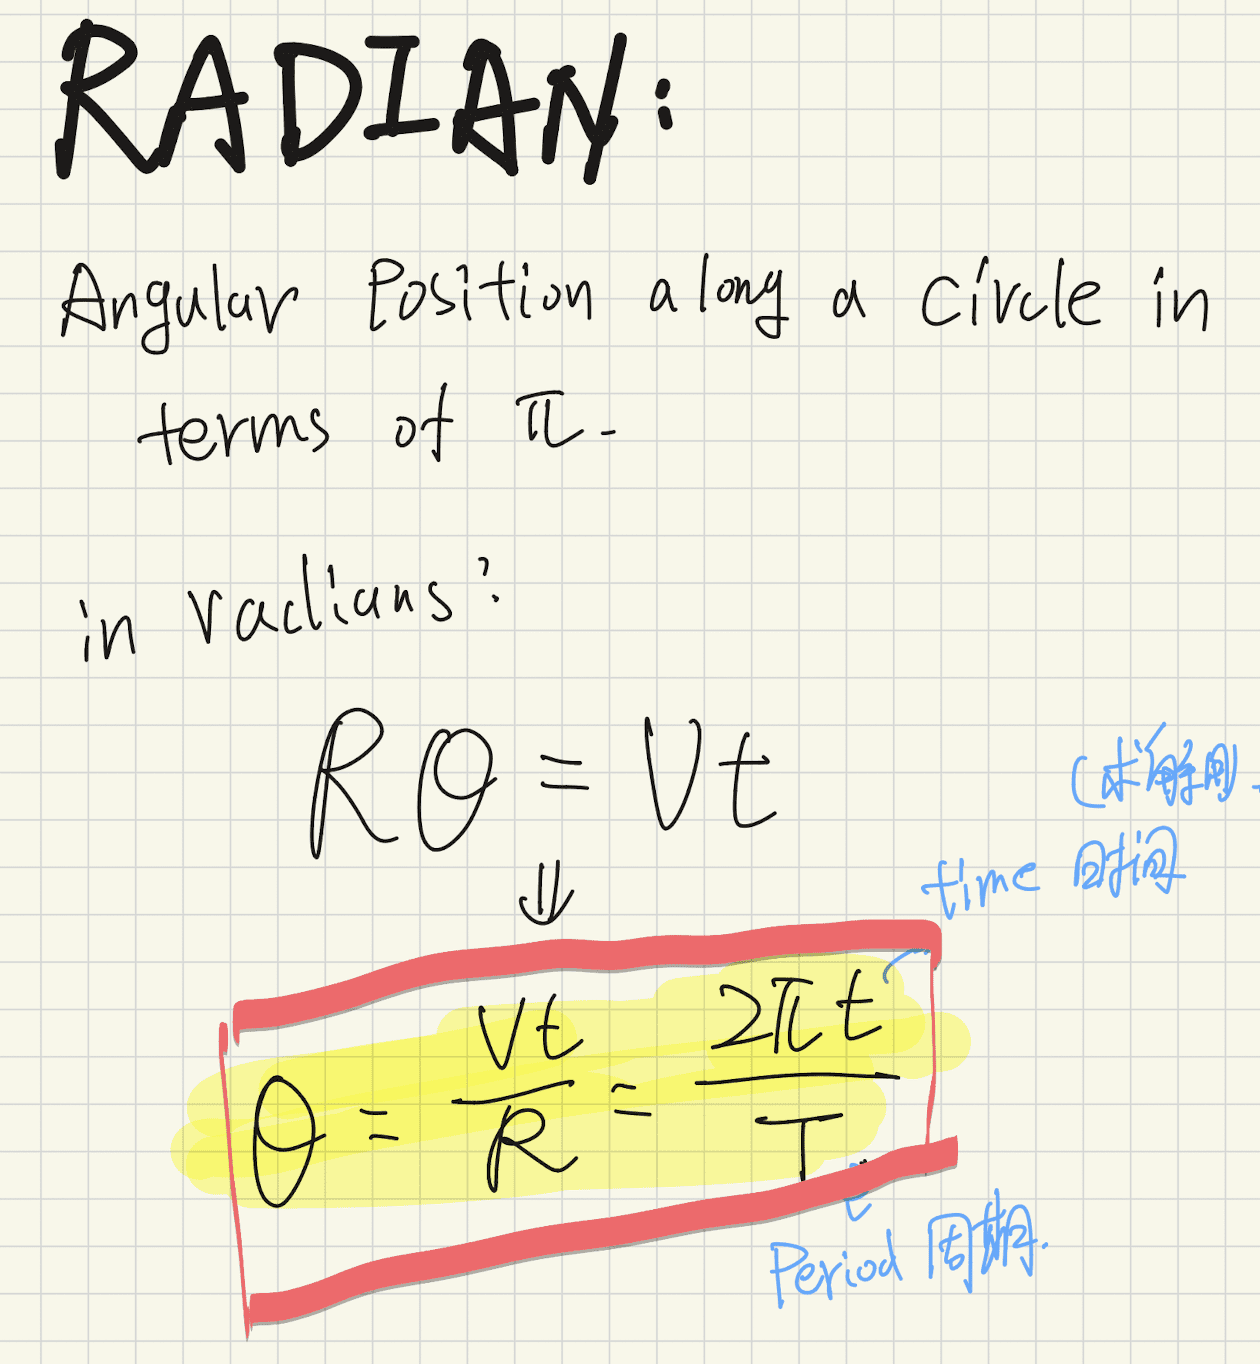 RADIAN:
Angular Position along a circle in
terms of π.
in radians?
Rθ = Vt
(求解用)
time 时间
θ = Vt/R = 2πt/T
Period 周期.